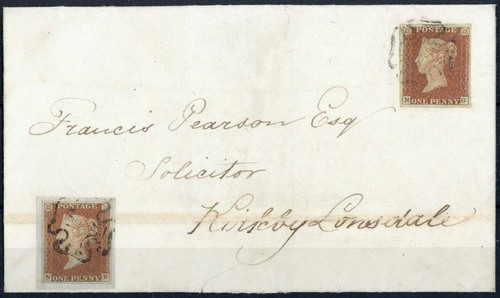 POSTAGE
ONE PENNY
Francis Pearson Esq
Solicitor
Kirkby Lonsdale
POSTAGE
ONE PENNY